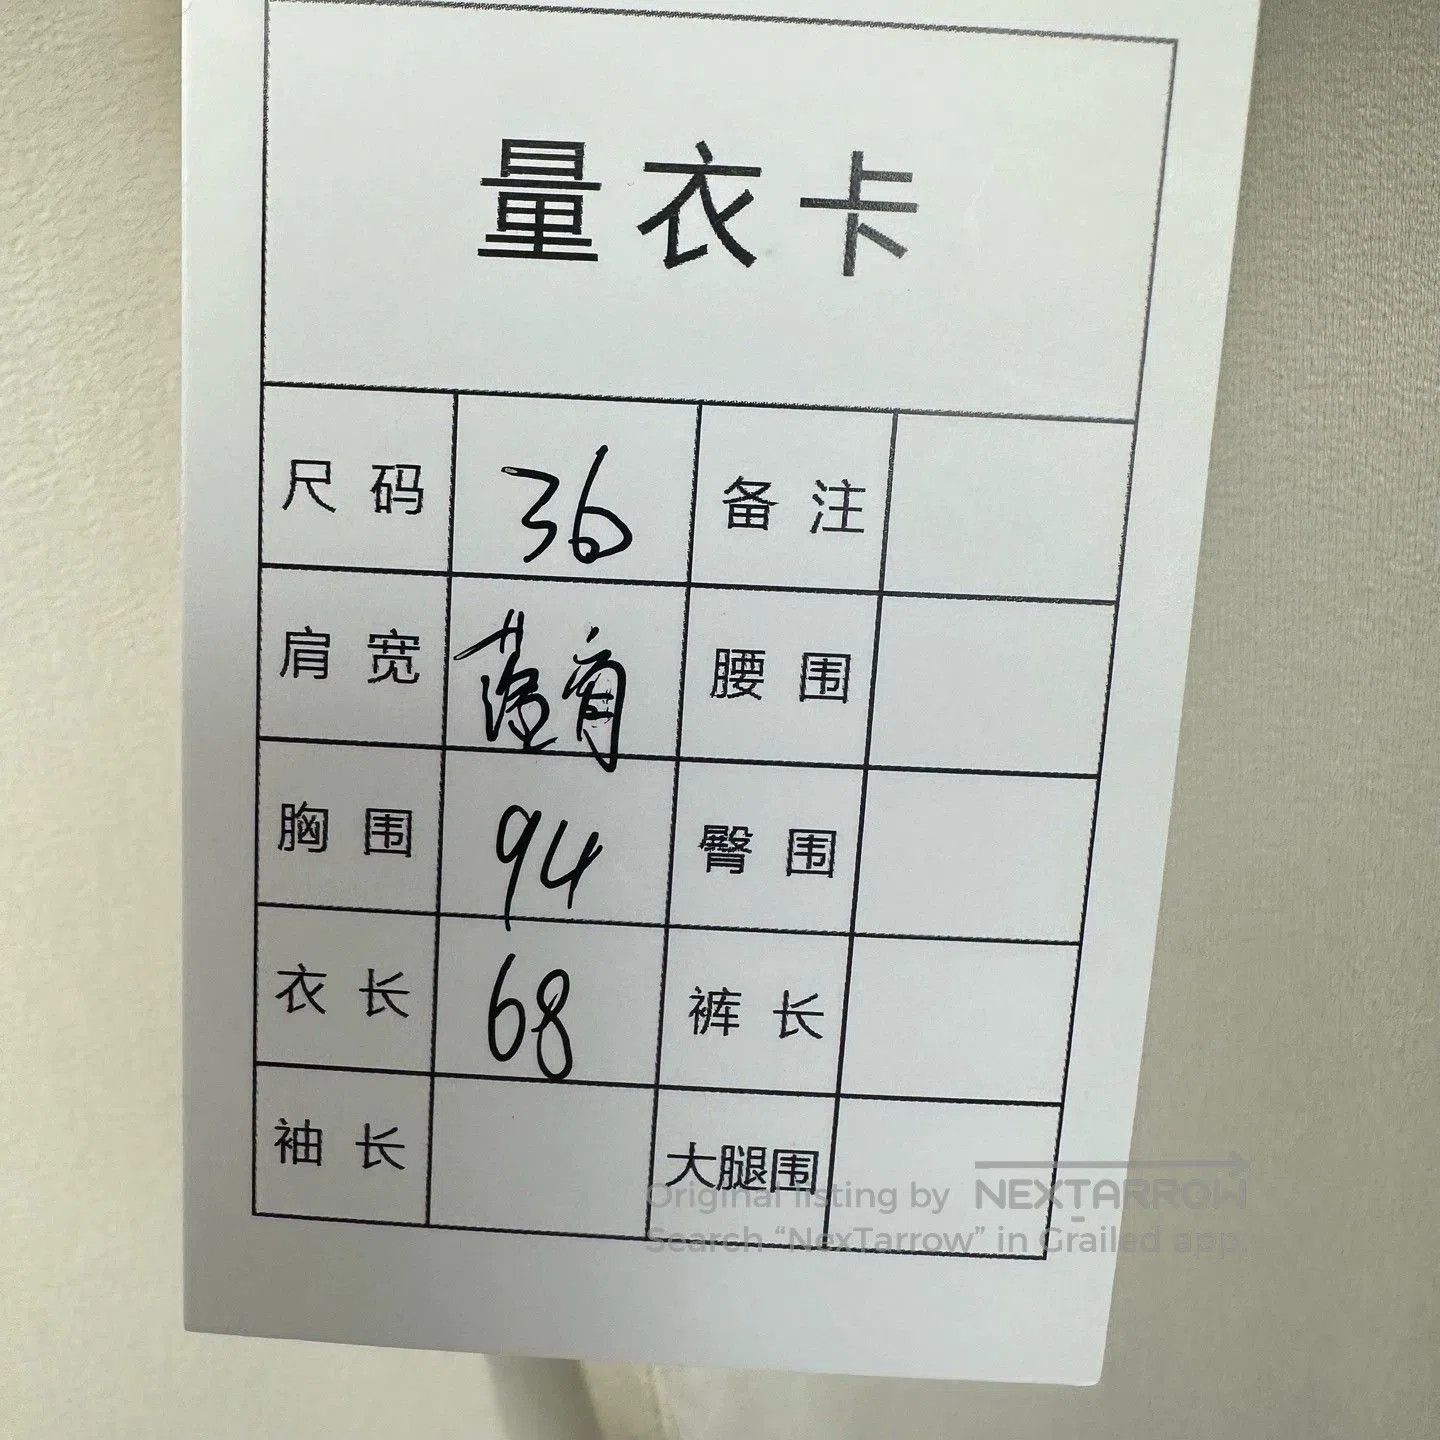 量衣卡
尺码 36 备注
肩宽 落肩 腰围
胸围 94 臀围
衣长 68 裤长
袖长 大腿围
Original listing by NEXTARROW
Search “NexTarrow” in Grailed app.